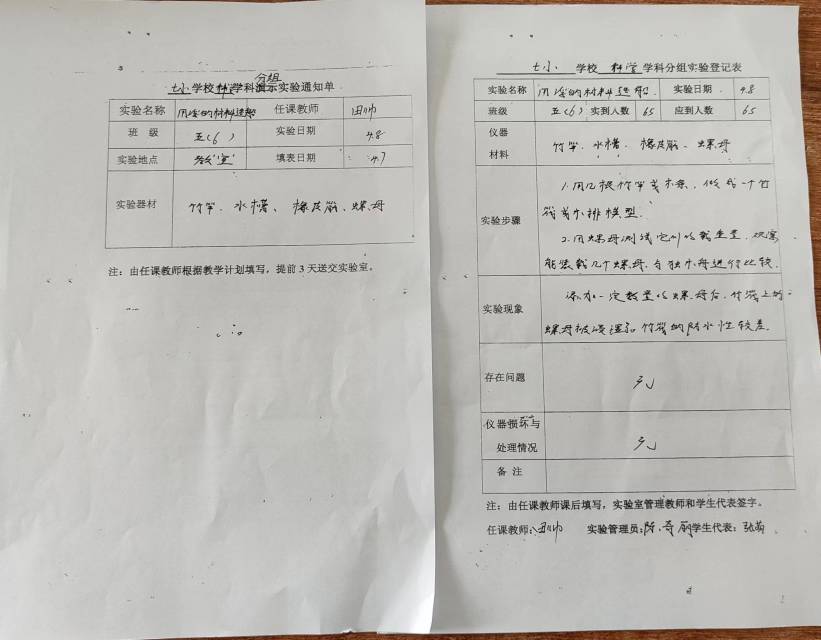 分组
七小学校科学学科演示实验通知单
实验名称 用浮的材料造船 任课教师 田帅
班 级 五(6) 实验日期 4.8
实验地点 教室 填表日期 4.7
实验器材 竹竿、水槽、橡皮筋、螺母
注：由任课教师根据教学计划填写，提前3天送交实验室。
七小 学校 科学 学科分组实验登记表
实验名称 用浮的材料造船 实验日期 4.8
班级 五(6) 实到人数 65 应到人数 65
仪器
材料
竹竿、水槽、橡皮筋、螺母
实验步骤
1.用几根竹竿或木条，做成一个竹
筏或木排模型.
2.用螺母测试它们的载重量，观察
能装载几个螺母，与独木舟进行比较.
实验现象
添加一定数量的螺母后，竹筏上的
螺母被浸湿和竹筏的防水性较差.
存在问题 无
仪器损坏与
处理情况
无
备 注
注：由任课教师课后填写，实验室管理教师和学生代表签字。
任课教师：田帅 实验管理员： 学生代表：